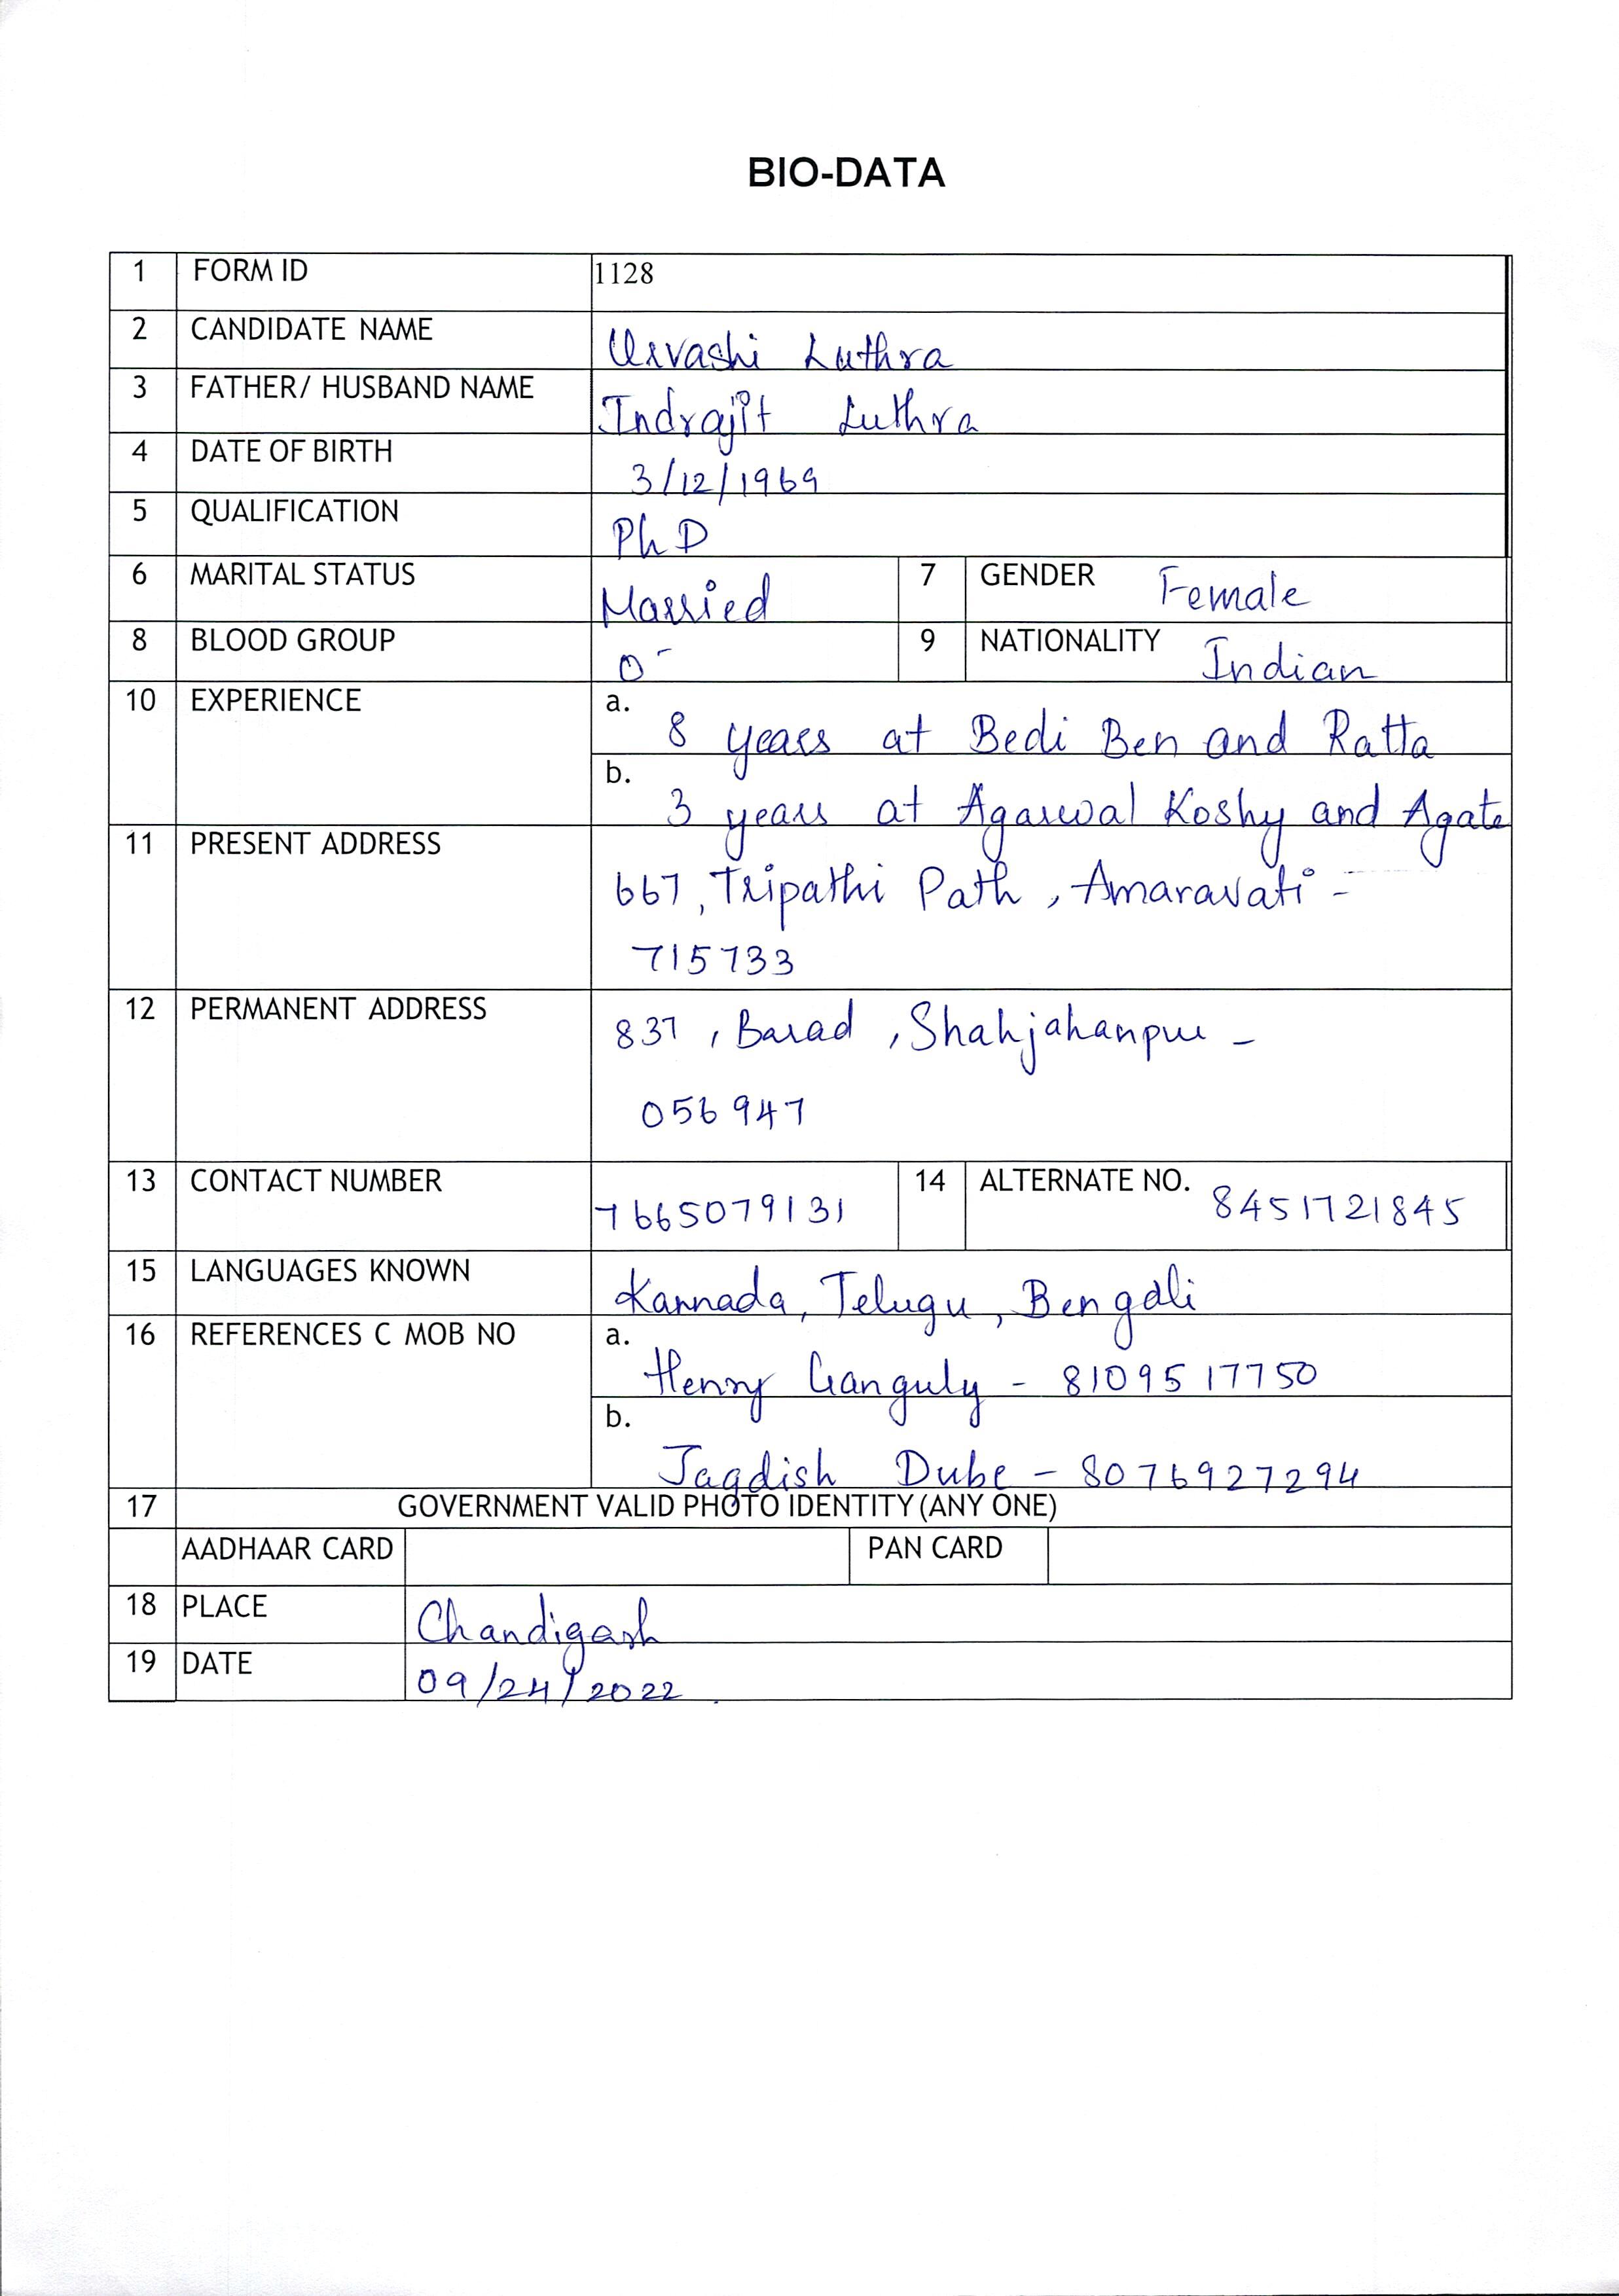 BIO-DATA
1 FORM ID 1128
2 CANDIDATE NAME Urvashi Luthra
3 FATHER/ HUSBAND NAME Indrajit Luthra
4 DATE OF BIRTH 3/12/1969
5 QUALIFICATION PhD
6 MARITAL STATUS Married 7 GENDER Female
8 BLOOD GROUP O- 9 NATIONALITY Indian
10 EXPERIENCE a. 8 years at Bedi Ben and Ratta
b. 3 years at Agarwal Koshy and Agate
11 PRESENT ADDRESS 667, Tripathi Path, Amaravati -
715733
12 PERMANENT ADDRESS 837, Barad, Shahjahanpur -
056947
13 CONTACT NUMBER 7665079131 14 ALTERNATE NO. 8451721845
15 LANGUAGES KNOWN Kannada, Telugu, Bengali
16 REFERENCES C MOB NO a. Henry Ganguly - 8109517750
b. Jagdish Dube - 8076927294
17 GOVERNMENT VALID PHOTO IDENTITY (ANY ONE)
AADHAAR CARD PAN CARD
18 PLACE Chandigarh
19 DATE 09/24/2022